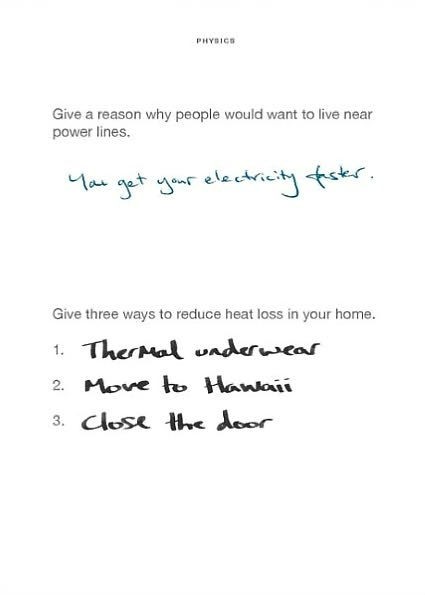 PHYSICS
Give a reason why people would want to live near
power lines.
You get your electricity faster.
Give three ways to reduce heat loss in your home.
1. Thermal underwear
2. Move to Hawaii
3. Close the door